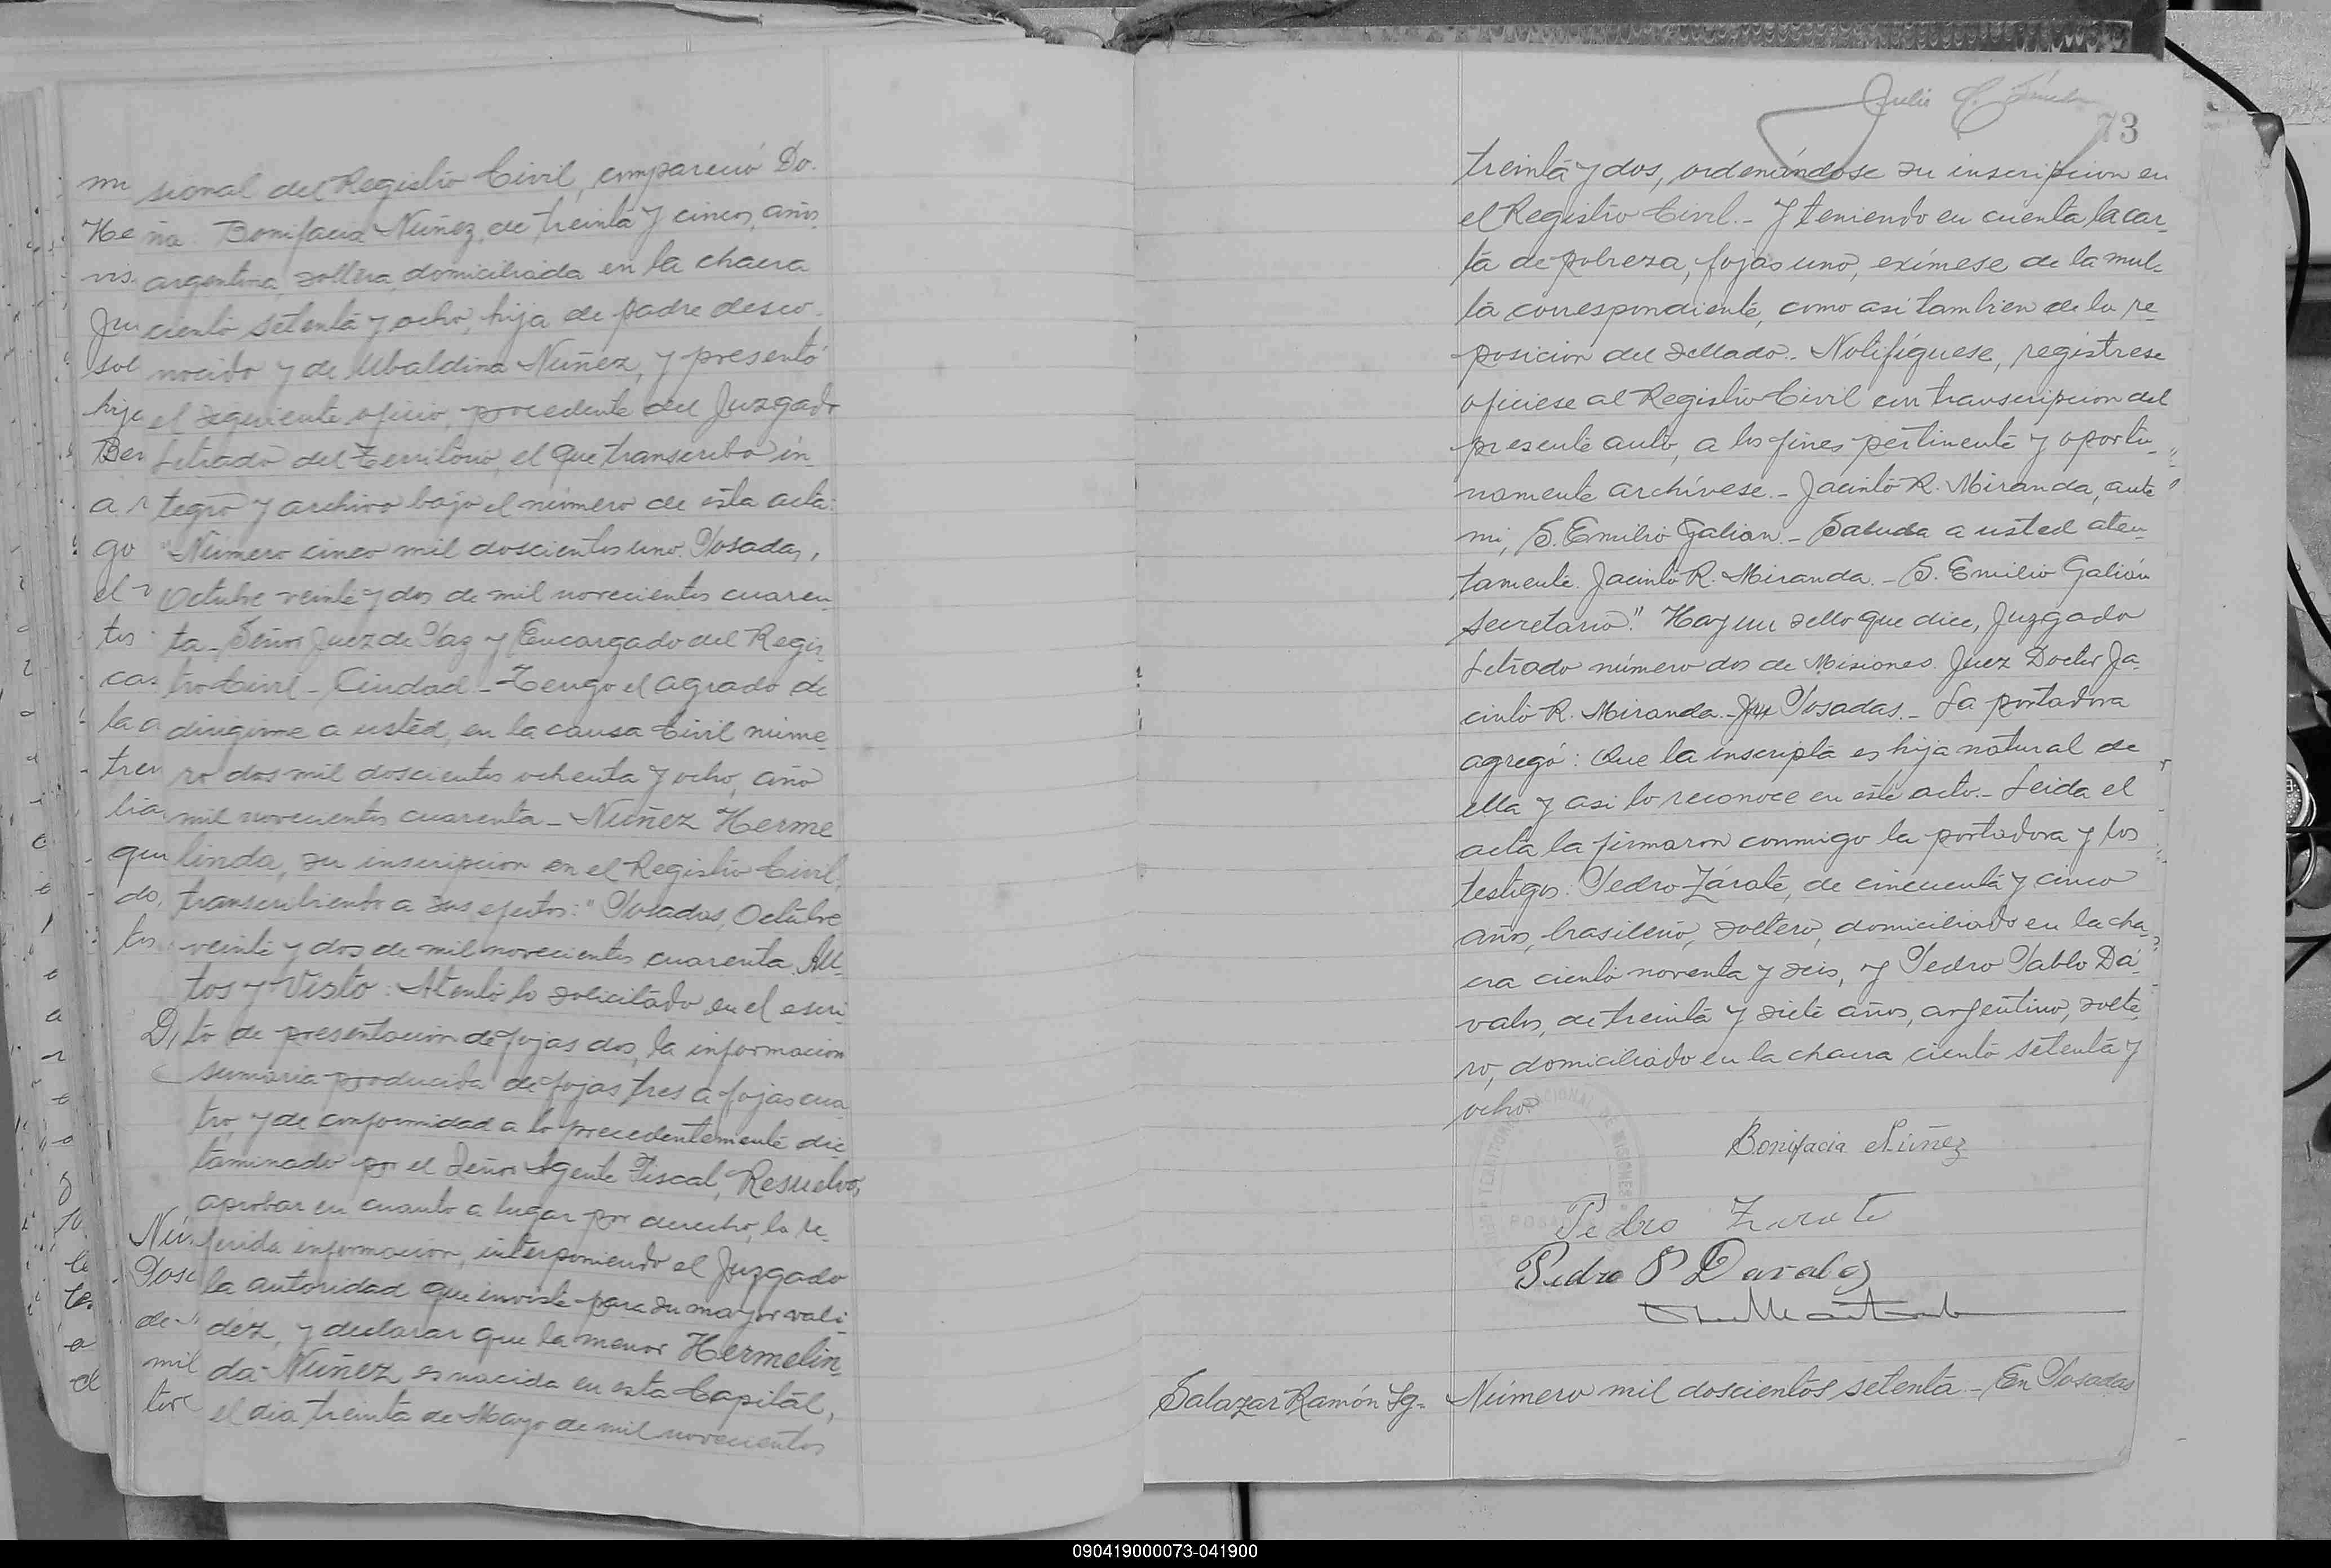 sional del Registro Civil, compareció Do-
ña Bonifacia Núñez, de treinta y cinco, años
argentina, soltera, domiciliada en la chacra
ciento setenta y ocho, hija de padre desco-
nocido y de Ubaldina Núñez, y presentó
el siguiente oficio, procedente del Juzgado
Letrado del Territorio, el que transcribo ín-
tegro y archivo bajo el número de esta acta:
"Número cinco mil doscientos uno. Posadas,
Octubre veinte y dos de mil novecientos cuaren-
ta - Señor Juez de Paz y Encargado del Regis-
tro Civil - Ciudad - Tengo el agrado de
dirigirme a usted, en la causa Civil núme-
ro dos mil doscientos ochenta y ocho, año
mil novecientos cuarenta - Núñez Herme
linda, su inscripción en el Registro Civil,
transcribiento a sus efectos: "Posadas, Octubre
veinte y dos de mil novecientos cuarenta Au-
tos y Visto: Atento lo solicitado en el escri-
to de presentación de fojas dos, la información
sumaria producida de fojas tres a fojas cua-
tro, y de conformidad a lo precedentemente dic-
taminado por el Señor Agente Fiscal, Resuelvo,
aprobar en cuanto a lugar por derecho, la re-
ferida información, interponiendo el Juzgado
la autoridad que inviste para su mayor vali-
déz, y declarar que la menor Hermelin-
da Núñez es nacida en esta Capital,
el día treinta de Mayo de mil novecientos
73
treinta y dos, ordenándose su inscripcion en
el Registro Civil. - Y teniendo en cuenta la car-
ta de pobreza, fojas uno, exímese de la mul-
ta correspondiente, como así tambien de la re-
posición del sellado. - Notifíquese, registrese
ofíciese al Registro Civil con transcripcion del
presente auto, a los fines pertinente y oportu-
namente archívese. - Jacinto R. Miranda, ante
mi, S. Emilio Galian. - Saluda a usted aten-
tamente. Jacinto R. Miranda. - S. Emilio Galián
secretario." Hay un sello que dice, Juzgado
Letrado número dos de Misiones. Juez Doctor Ja-
cinto R. Miranda. - Posadas. - La portadora
agregó: Que la inscripta es hija natural de
ella y asi lo reconoce en este acto. - Leida el
acta la firmaron conmigo la portadora y los
testigos: Pedro Zárate, de cincuenta y cinco
años, brasileño, soltero, domiciliado en la cha-
cra ciento noventa y seis, y Pedro Pablo Dá-
valos, de treinta y siete años, argentino, solte-
ro, domiciliado en la chacra ciento setenta y
ocho.
Bonifacia Núñez
Pedro Zarate
Pedro P Davalos
Salazar Ramón Ig- Número mil doscientos setenta - En Posadas
090419000073-041900